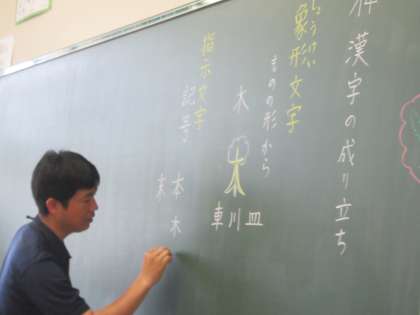 漢字の成り立ち
ょうけい
象形文字
ものの形から
木
木
車川皿
指示文字
記号
本木
末